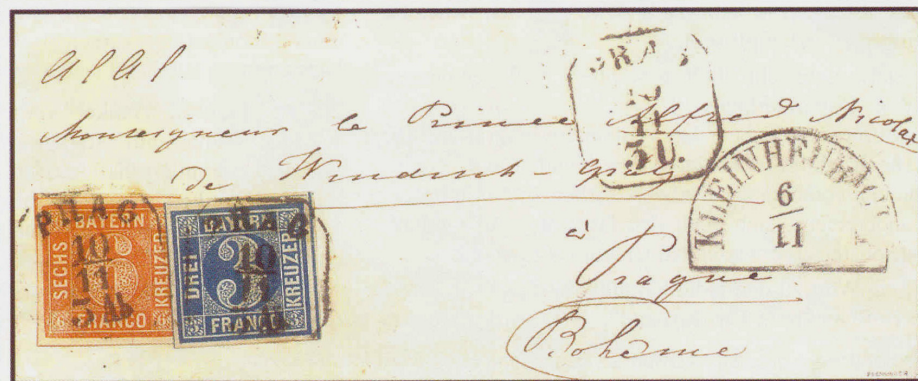 Monseigneur le Prince Alfred Nicolas
de Windisch-Grätz
à
Prague
Bohème
PRAG
10
11
3 U.
KLEINHEUBACH
6
11
PRAG
10
11
BAYERN
SECHS
6
KREUZER
FRANCO
PRAG
10
11
BAYERN
DREI
3
KREUZER
FRANCO